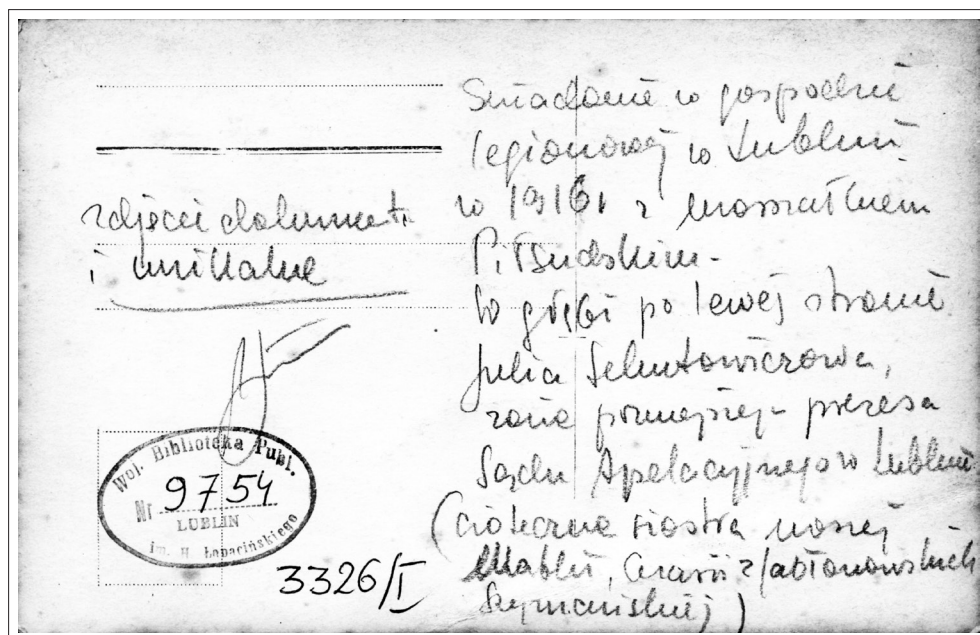 zdjęcie dokument.
i unikalne
Woj. Biblioteka Publ.
Nr 9754
LUBLIN
im. H. Łopacińskiego
3326/I
Śniadanie w gospodzie
legionowej w Lublinie
w 1916r z marszałkiem
Piłsudskim.
W głębi po lewej stronie
Julia Sekutowiczowa,
żona późniejszego prezesa
Sądu Apelacyjnego w Lublinie
(cioteczna siostra naszej
z Jabłonowskich
Szymańskiej)